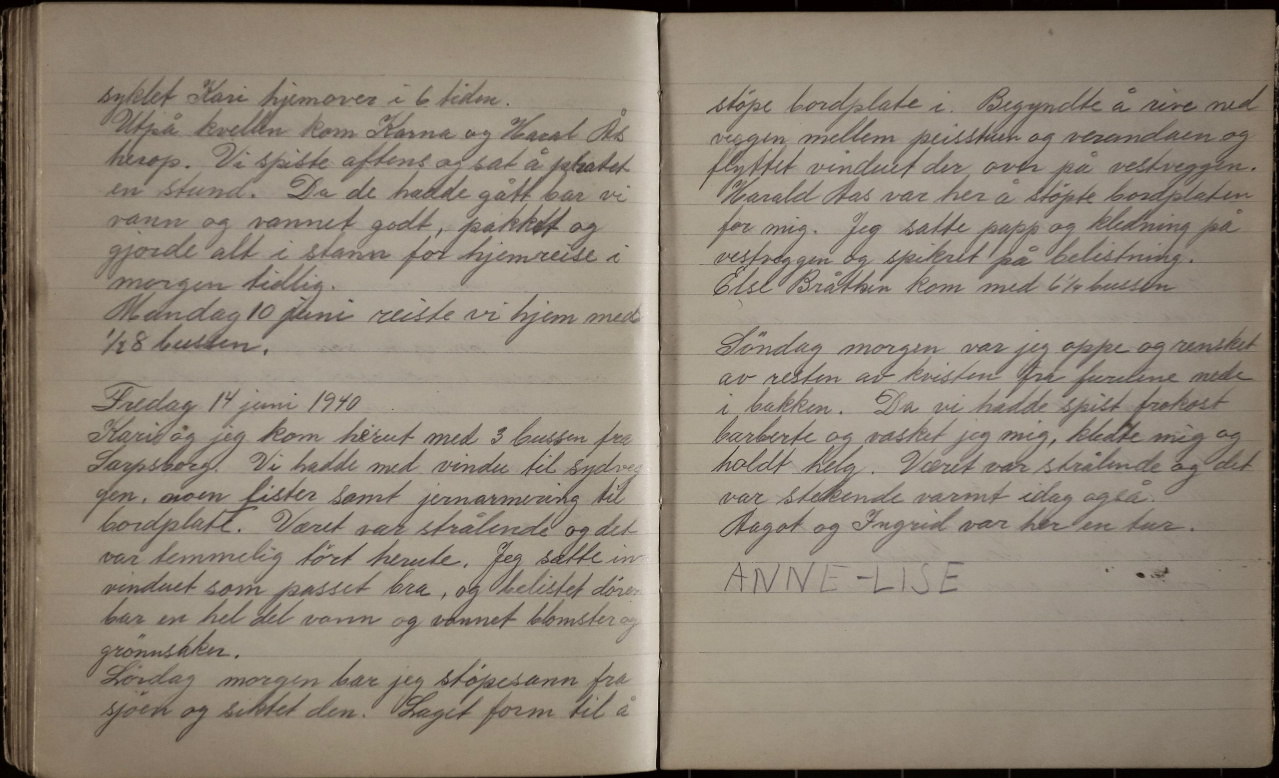 syklet Kari hjemover i 6 tiden.
Utpå kvellen kom Karna og Haral Ås
herop. Vi spiste aftens og sat å pratet
en stund. Da de hadde gått bar vi
vann og vannet godt, pakket og
gjorde alt i stann for hjemreise i
morgen tidlig.
Mandag 10 juni reiste vi hjem med
1/2 8 bussen.
Fredag 14 juni 1940
Kari og jeg kom herut med 3 bussen fra
Sarpsborg. Vi hadde med vindu til sydveg
gen, noen lister samt jernarmering til
bordplate. Været var strålende og det
var temmelig tørt herute. Jeg satte inn
vinduet som passet bra, og belistet døren
bar en hel del vann og vannet blomster og
grønnsaker.
Lördag morgen bar jeg stöpesann fra
sjöen og siktet den. Laget form til å
stöpe bordplate i. Begyndte å rive ned
veggen mellem peisstuen og verandaen og
flyttet vinduet der over på vestveggen.
Harald Aas var her å stöpte bordplaten
for mig. Jeg satte papp og kledning på
vestveggen og spikret på belistning.
Else Bråthen kom med 6 1/2 bussen
Söndag morgen var jeg oppe og rensket
av resten av kvisten fra furuene nede
i bakken. Da vi hadde spist frokost
barberte og vasket jeg mig, kledte mig og
holdt helg. Været var strålende og det
var stekende varmt idag også.
Aagot og Ingrid var her en tur.
ANNE-LISE